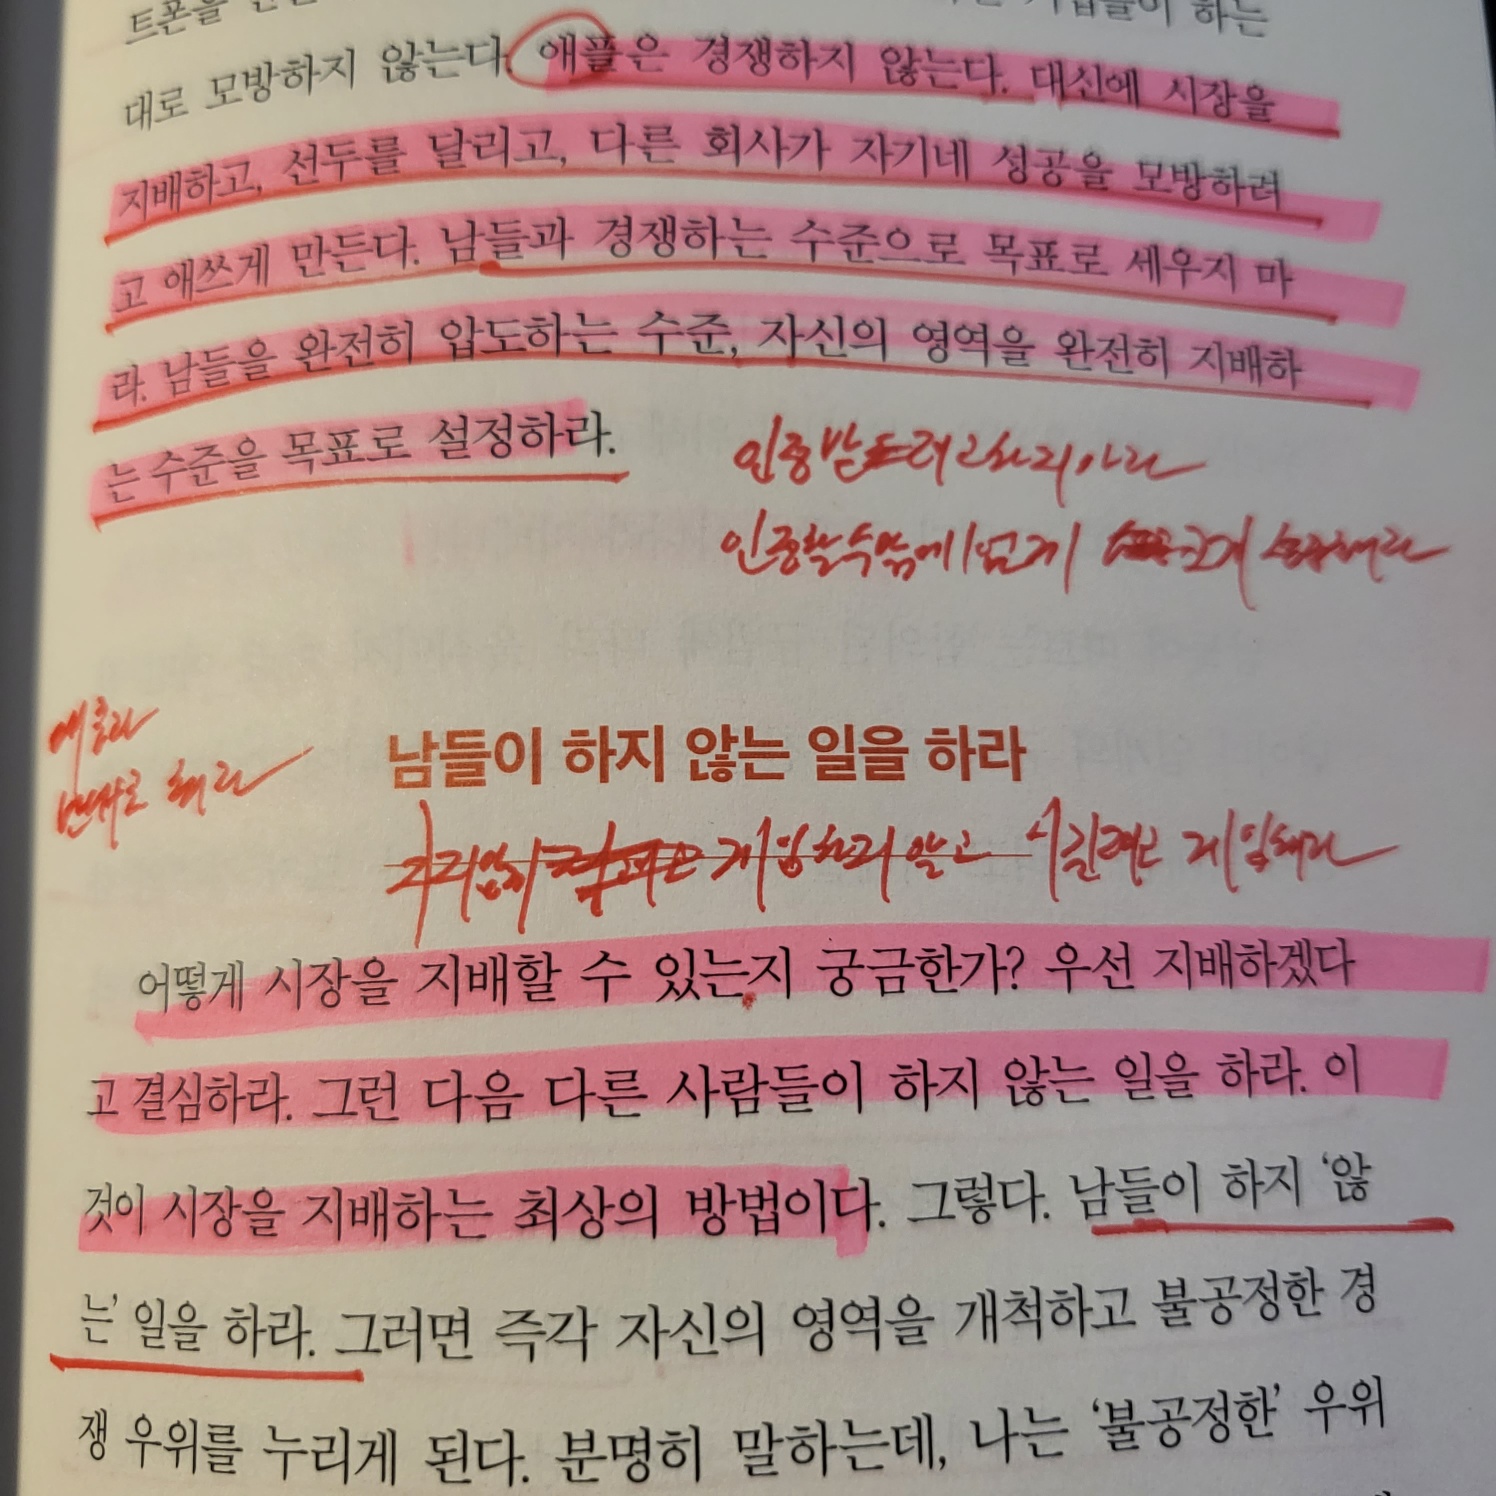 트폰을 하는
대로 모방하지 않는다. 애플은 경쟁하지 않는다. 대신에 시장을
지배하고, 선두를 달리고, 다른 회사가 자기네 성공을 모방하려
고 애쓰게 만든다. 남들과 경쟁하는 수준으로 목표로 세우지 마
라. 남들을 완전히 압도하는 수준, 자신의 영역을 완전히 지배하
는 수준을 목표로 설정하라.
인증받으려고하지마라
인증할수밖에 없게
해라
남들이 하지 않는 일을 하라
게임하지 않고 게임해라
어떻게 시장을 지배할 수 있는지 궁금한가? 우선 지배하겠다
고 결심하라. 그런 다음 다른 사람들이 하지 않는 일을 하라. 이
것이 시장을 지배하는 최상의 방법이다. 그렇다. 남들이 하지 ‘않
는’ 일을 하라. 그러면 즉각 자신의 영역을 개척하고 불공정한 경
쟁 우위를 누리게 된다. 분명히 말하는데, 나는 ‘불공정한’ 우위